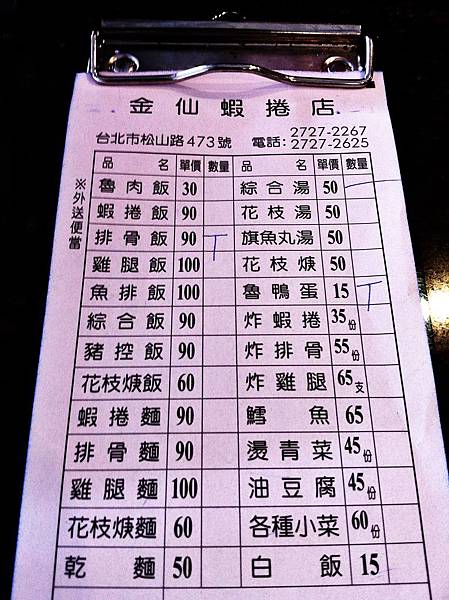 金仙蝦捲店
台北市松山路473號 電話：2727-2267
2727-2625
※外送便當
品名 單價 數量 品名 單價 數量
魯肉飯 30 綜合湯 50 一
蝦捲飯 90 花枝湯 50
排骨飯 90 T 旗魚丸湯 50
雞腿飯 100 花枝焿 50
魚排飯 100 魯鴨蛋 15 T
綜合飯 90 炸蝦捲 35份
豬控飯 90 炸排骨 55份
花枝焿飯 60 炸雞腿 65支
蝦捲麵 90 鱈魚 65
排骨麵 90 燙青菜 45份
雞腿麵 100 油豆腐 45份
花枝焿麵 60 各種小菜 60份
乾麵 50 白飯 15